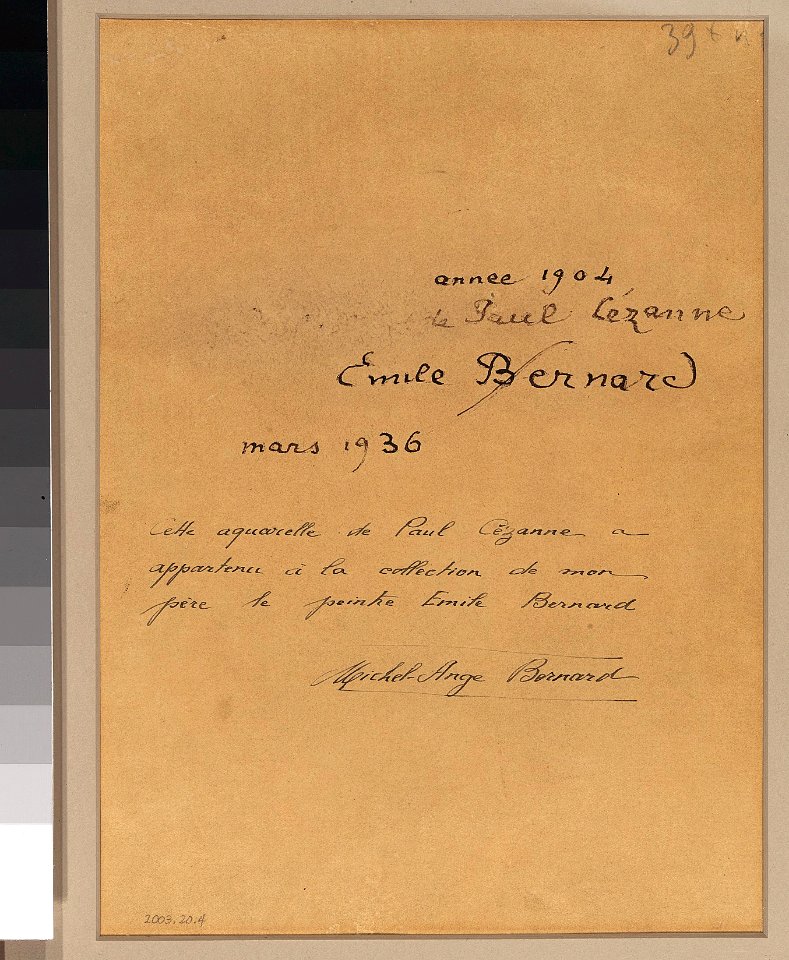 39
annee 1904
de Paul Cézanne
Emile Bernard
mars 1936
Cette aquarelle de Paul Cézanne a
appartenu à la collection de mon
père le peintre Emile Bernard
Michel-Ange Bernard
2003.20.4